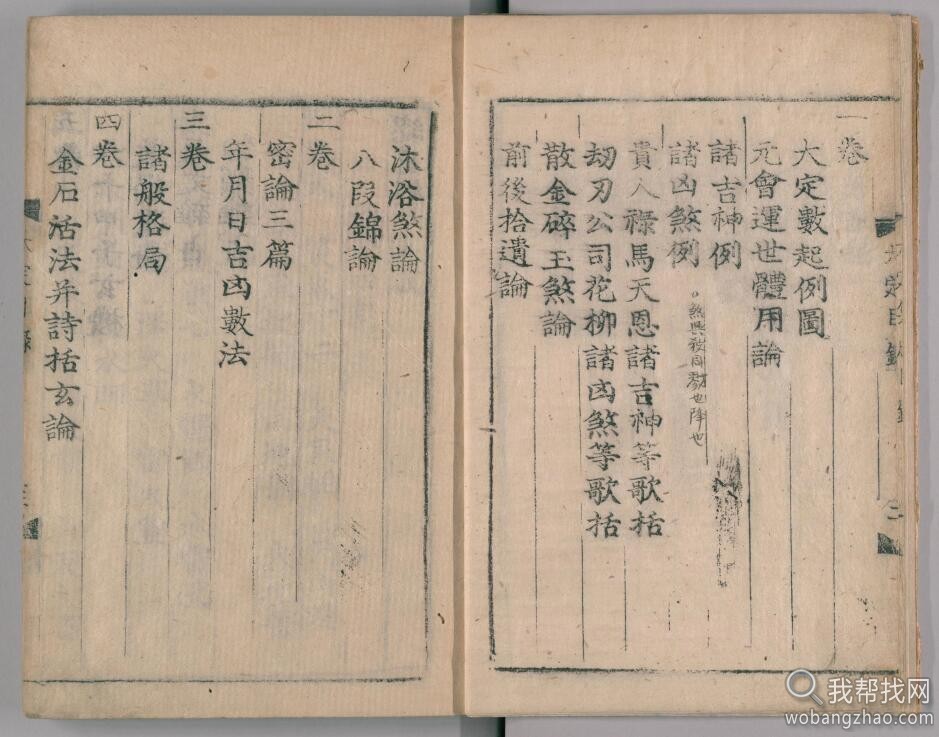 一卷
大定數起例圖
元會運世體用論
諸吉神例
諸凶煞例
。煞與殺同
也降也
貴人祿馬天恩諸吉神等歌括
刼刃公司花柳諸凶煞等歌括
散金碎玉煞論
前後拾遺論
沐浴煞論
八段錦論
二卷
密論三篇
年月日吉凶數法
三卷
諸般格局
四卷
金石活法并詩括玄論
我帮找网
wobangzhao.com